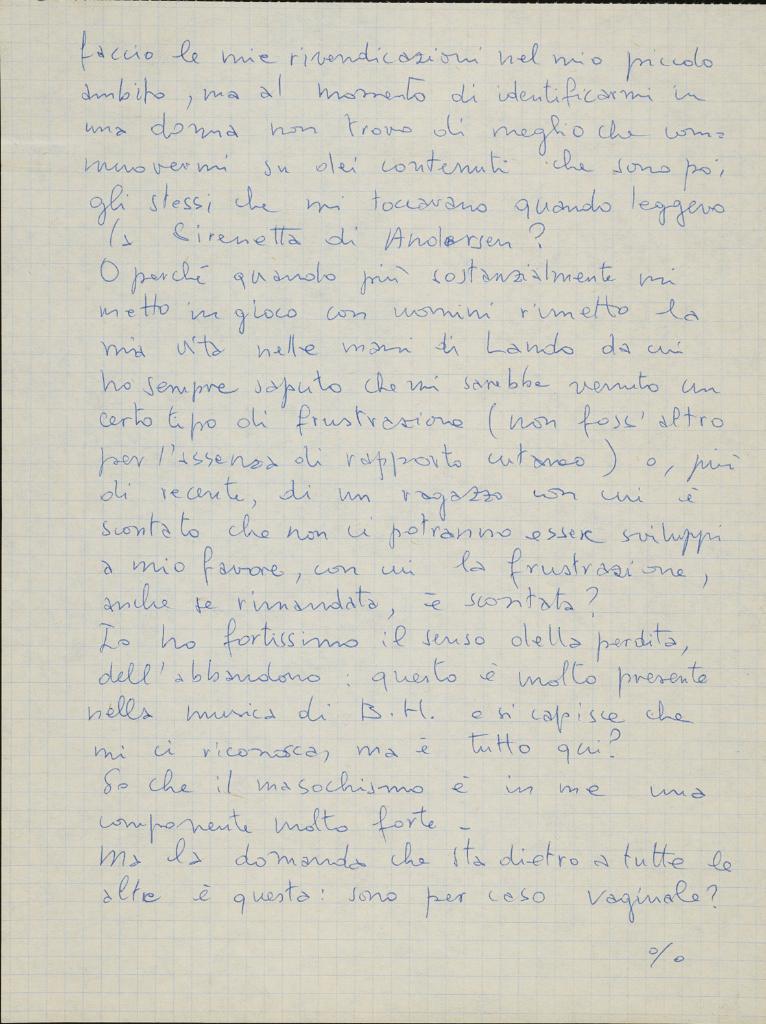 faccio le mie rivendicazioni nel mio piccolo
ambito, ma al momento di identificarmi in
una donna non trovo di meglio che com=
muovermi su dei contenuti che sono poi
gli stessi che mi toccavano quando leggevo
la Sirenetta di Andersen?
O perché quando più sostanzialmente mi
metto in gioco con uomini rimetto la
mia vita nelle mani di Lando da cui
ho sempre saputo che mi sarebbe venuto un
certo tipo di frustrazione (non foss'altro
per l'assenza di rapporto cutaneo) o, più
di recente, di un ragazzo con cui è
scontato che non ci potranno essere sviluppi
a mio favore, con cui la frustrazione,
anche se rimandata, è scontata?
Io ho fortissimo il senso della perdita,
dell'abbandono: questo è molto presente
nella musica di B.H. e si capisce che
mi ci riconosca, ma è tutto qui?
So che il masochismo è in me una
componente molto forte -
Ma la domanda che sta dietro a tutte le
altre è questa: sono per caso vaginale?
%